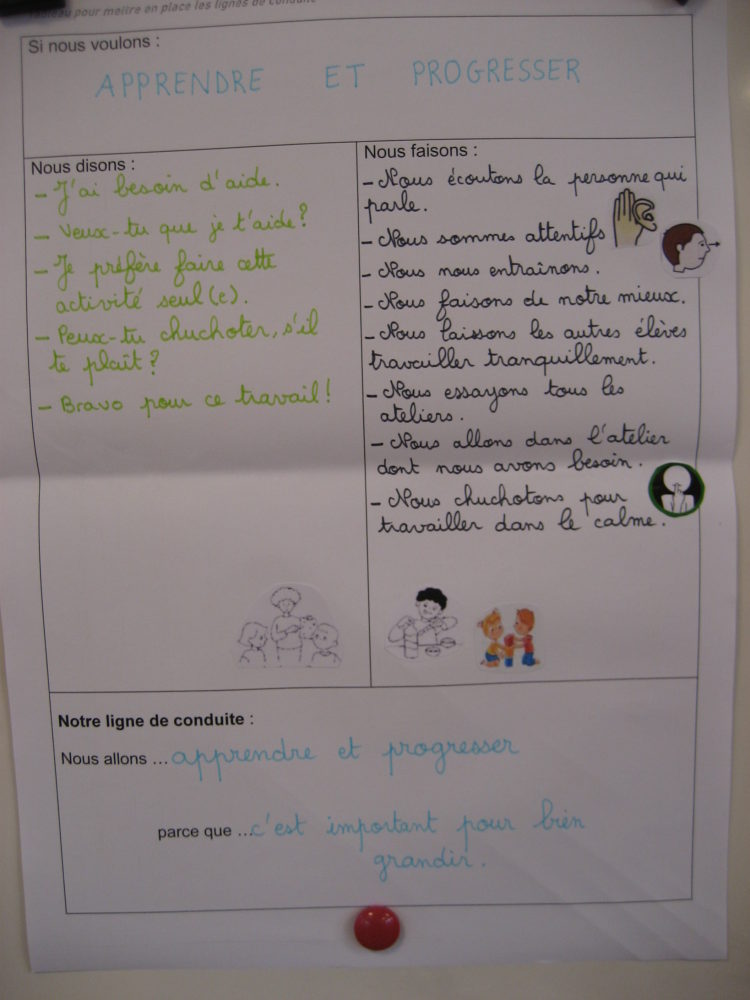 Tableau pour mettre en place les lignes de conduite
Si nous voulons :
APPRENDRE ET PROGRESSER
Nous disons :
- J'ai besoin d'aide.
- Veux-tu que je t'aide?
- Je préfère faire cette
activité seul(e).
- Peux-tu chuchoter, s'il
te plaît?
- Bravo pour ce travail!
Nous faisons :
- Nous écoutons la personne qui
parle.
- Nous sommes attentifs
- Nous nous entraînons.
- Nous faisons de notre mieux.
- Nous laissons les autres élèves
travailler tranquillement.
- Nous essayons tous les
ateliers.
- Nous allons dans l'atelier
dont nous avons besoin.
- Nous chuchotons pour
travailler dans le calme.
Notre ligne de conduite :
Nous allons ... apprendre et progresser
parce que ... c'est important pour bien
grandir.